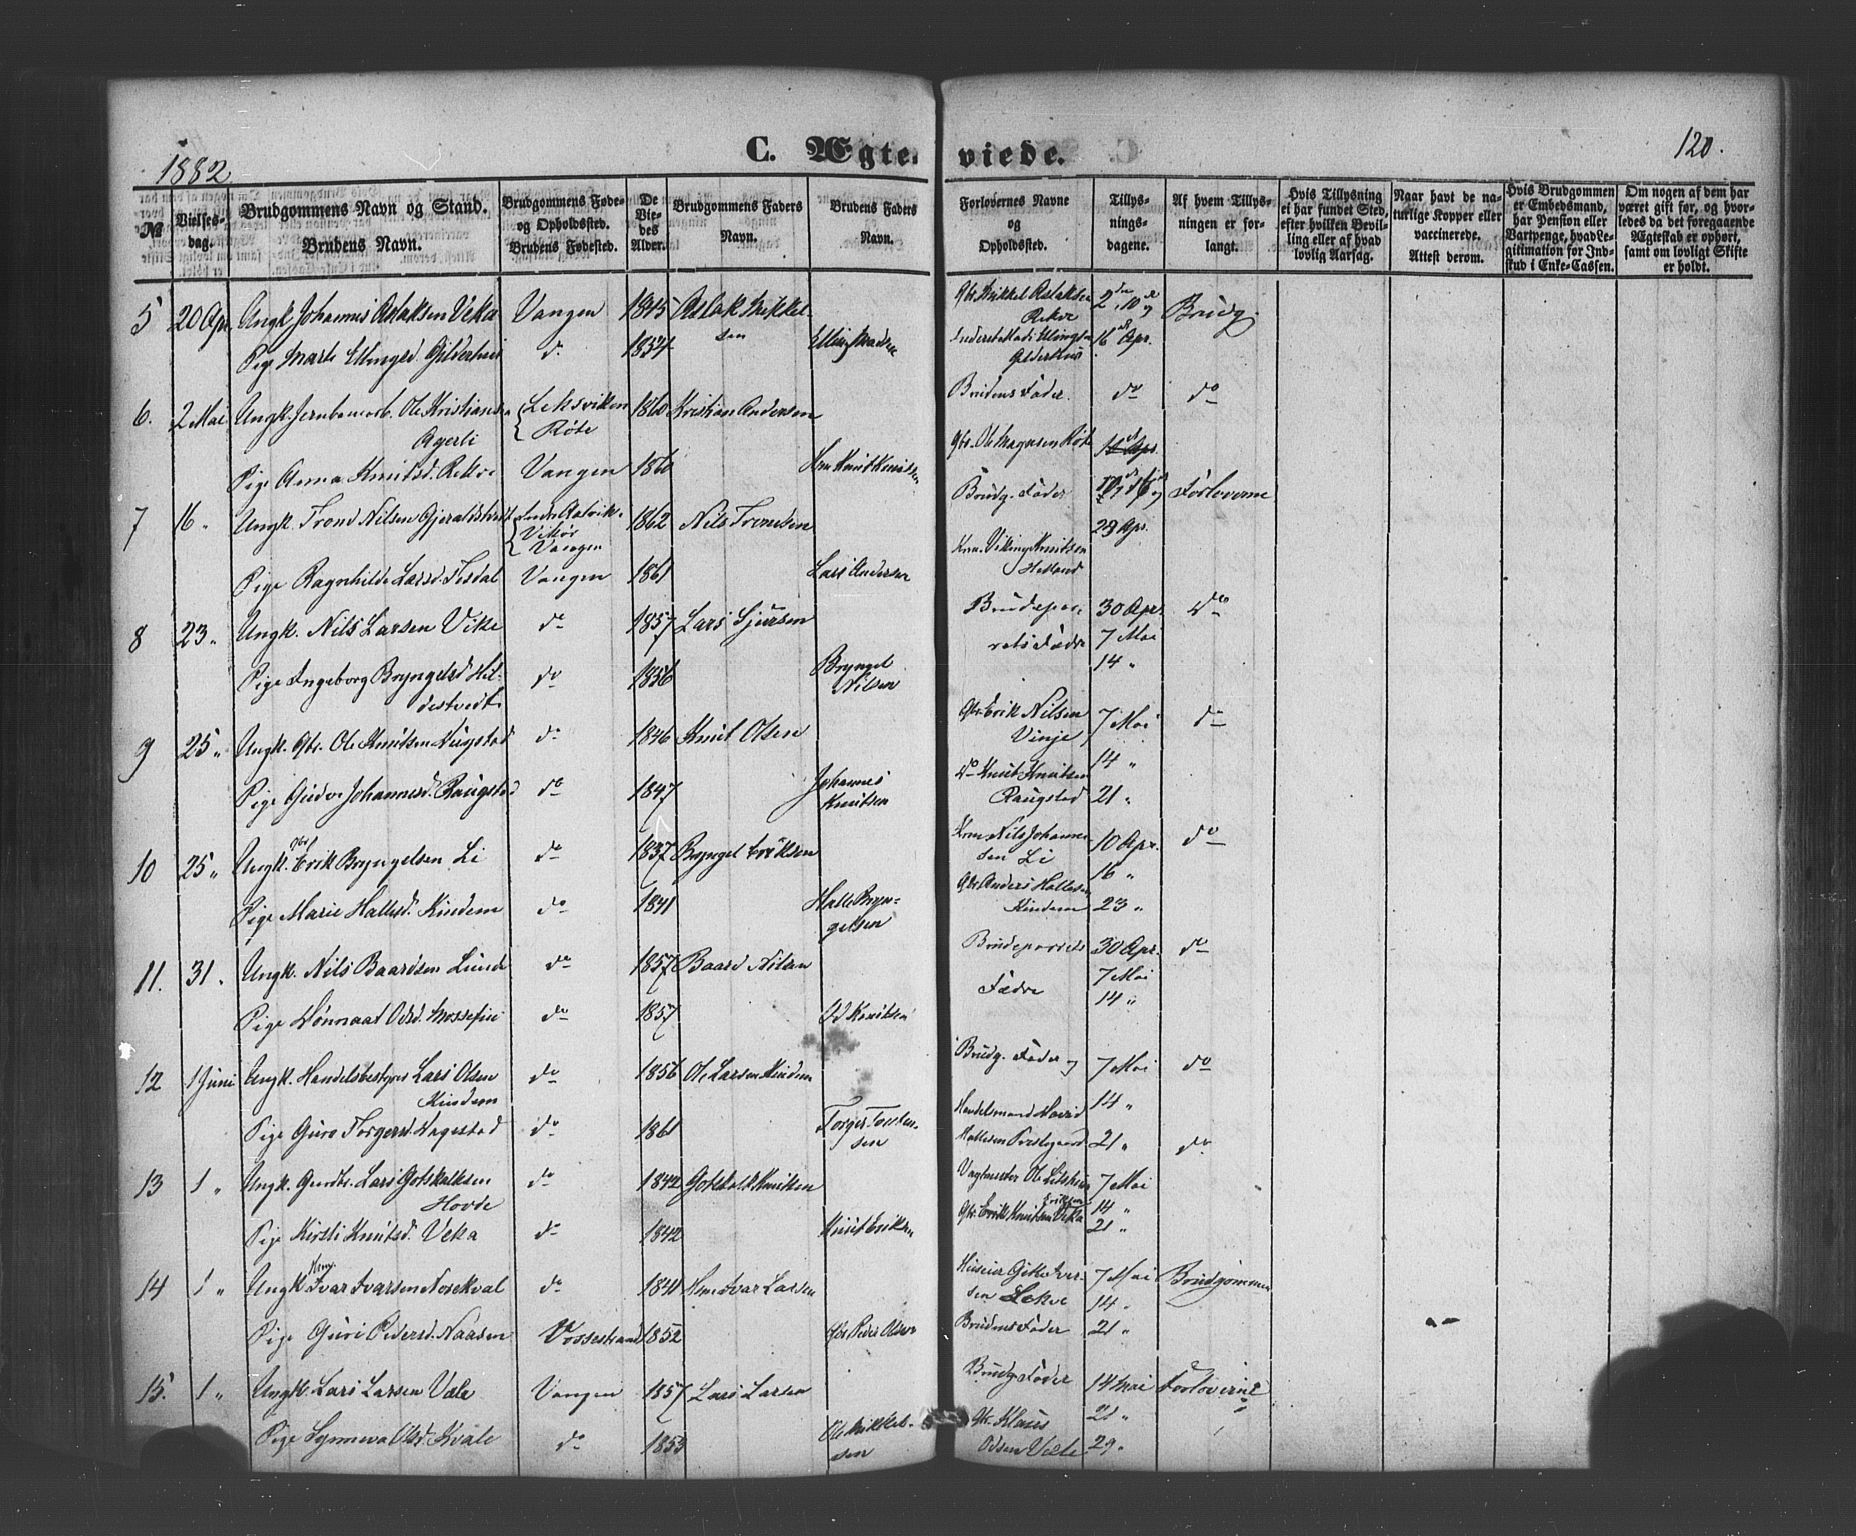 1882
C. Ægteviede.
120.
№
Vielsesdag.
Brudgommens Navn og Stand.
Brudens Navn.
Brudgommens Føde- og Opholdssted.
Brudens Fødested.
De Viedes Alder.
Brudgommens Faders Navn.
Brudens Faders Navn.
Forlovernes Navne og Opholdssted.
Tillysningsdagene.
Af hvem Tillysningen er forlangt.
Hvis Tillysning ei har fundet Sted, efter hvilken Bevilling eller af hvad lovlig Aarsag.
Naar havt de naturlige Kopper eller vaccinerede.
Attest derom.
Hvis Brudgommen er Embedsmand, har Pension eller Vartpenge, hvad Legitimation for Indskud i Enke-Cassen.
Om nogen af dem har været gift før, og hvorledes da det foregaaende Ægteskab er ophørt, samt om lovligt Skifte er holdt.
5 20 Apr. Ungk. Johannes Aslaksen Veka Vangen 1845 Aslak Mikkelsen Gbr. Mikkel Aslaksen Rekve 2den, 10de og 16de Apr. Brudg.
Pige Marte Ellingsd. Gilderhus do 1854 Elling Madsen Mads Ellingsen Gilderhus
6. 2 Mai Ungk. Jernbanearb. Ole Kristiansen Agerli Leksviken Røte 1860 Kristian Andersen Brudens Fader do do
Pige Anna Knutsd. Rekve Vangen 1860 Knut Knutsen Gbr. Ole Magnesen Røte
7 16 " Ungk. Trond Nilsen Vikør Vangen 1862 Nils Trondsen Brudg. Fader Forloverne
Pige Ragnhilde Larsd. Tesdal Vangen 1861 Lars Andersen Viking Knutsen Helland 23 Apr.
8 23 " Ungk. Nils Larsen Vike do 1857 Lars Sjursen Brudeparrets Fædre 30 Apr. do
7 Mai
Pige Ingeborg Bryngelsd. Hildestvedt do 1856 Bryngel Nilsen 14 "
9 25 " Ungk. Gbr. Ole Knutsen do 1846 Knut Olsen Gbr. Erik Nilsen Vinje 7 Mai do
14 "
Pige Gudve Johannesd. Raugstad do 1847 Johannes Knutsen do Knut Knutsen Raugstad 21 "
10 25 " Ungk. Gbr. Erik Bryngelsen Li do 1837 Bryngel Eriksen Nils Johannesen Li 10 Apr. do
16 "
Pige Marie Hallesd. Kindem do 1841 Halle Bryngelsen Gbr. Anders Hallesen Kindem 23 "
11. 31. Ungk. Nils Baardsen Lunde do 1857 Baard Nilsen Brudeparrets Fædre 30 Apr. do
7 Mai
14 "
Pige Odsd. Mossefin do 1857 Od Knutsen
12 1 Juni Ungk. Handelsbestyrer Lars Olsen Kindem do 1856 Ole Larsen Kindem Brudg. Fader og 7 Mai do
14 "
Pige Guro Torgersd. Hagestad do 1861 Torger Torstensen Handelsmand Hallesen Prestegaard 21 " do
13 1 " Ungk. Lars Gotskalksen Hovde do 1842 Gotskalk Knutsen Vagtmester Ole 7 Mai
14 "
Pige Kirsti Knutsd. Veka do 1842 Knut Eriksen Gbr. Erik Knutsen Veka 21 "
14 1 " Ungk. Ivar Ivarsen Nosekval do 1841 Ivar Larsen Huseier Iversen Lekve 7 Mai Brudgommen
14 "
Pige Guri Pedersd. Naasen Vossestrand 1852 Gbr. Peder Olsen Brudens Fader 21 "
15. 1 " Ungk. Lars Larsen Væle Vangen 1857 Lars Larsen Brudg. Fader 14 Mai Forloverne
21 "
Pige Synneva Olsd. Kvale do 1853 Ole Mikkelsen Klaus Odsen Væle 29.